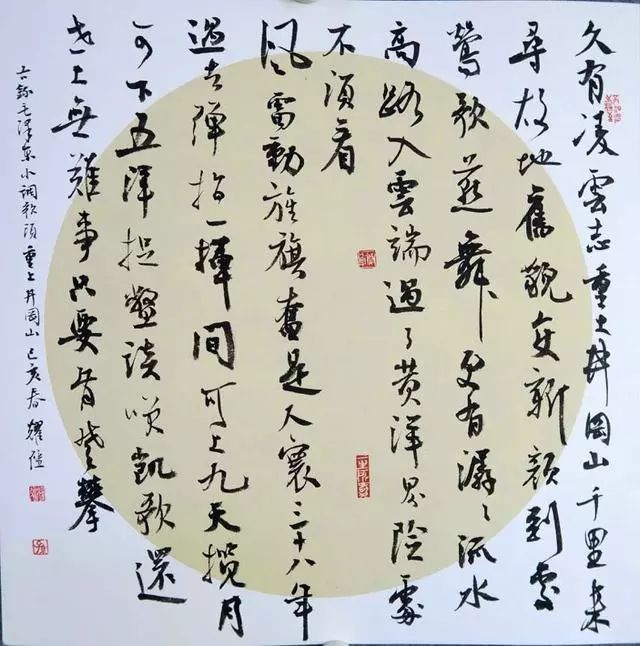 久有凌雲志重上井岡山千里來
尋故地舊貌变新顏到處
鶯歌燕舞更有潺々流水
高路入雲端過了黄洋界險處
不須看
風雷動旌旗奮是人寰三十八年
過去彈指一揮間可上九天攬月
可下五洋捉鱉談笑凱歌還
世上無難事只要肯登攀
右錄毛澤東水調歌頭重上井岡山己亥春耀